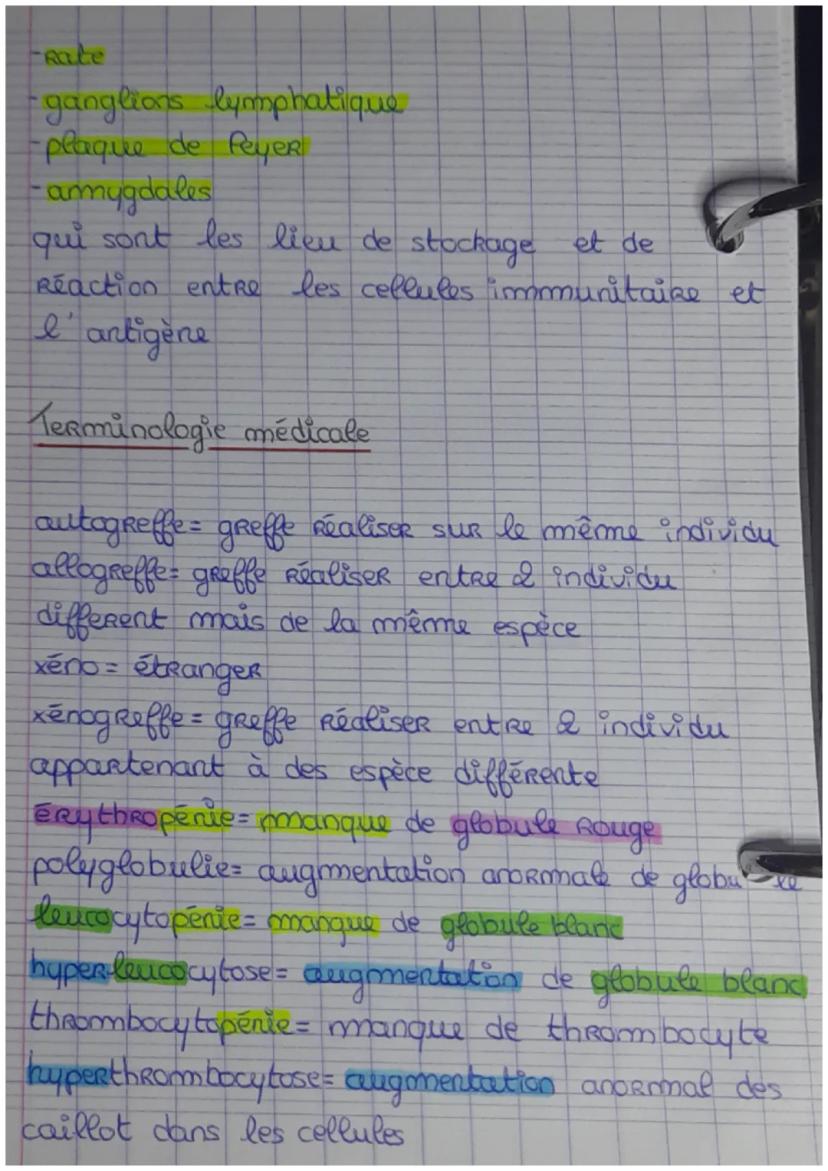 -Rate
-ganglions lymphatique
-plaque de Peyer
-amygdales
qui sont les lieu de stockage et de
Réaction entre les cellules immunitaire et
l'antigène
Terminologie médicale
autogreffe= greffe réaliser sur le même individu
allogreffe= greffe réaliser entre 2 individu
different mais de la même espèce
xéno= étranger
xénogreffe= greffe réaliser entre 2 individu
appartenant à des espèce différente
érythropénie= manque de globule rouge
polyglobulie= augmentation anormale de globule
leucocytopénie= manque de globule blanc
hyper-leucocytose= augmentation de globule blanc
thrombocytopénie= manque de thrombocyte
hyperthrombocytose= augmentation anormal des
caillot dans les cellules